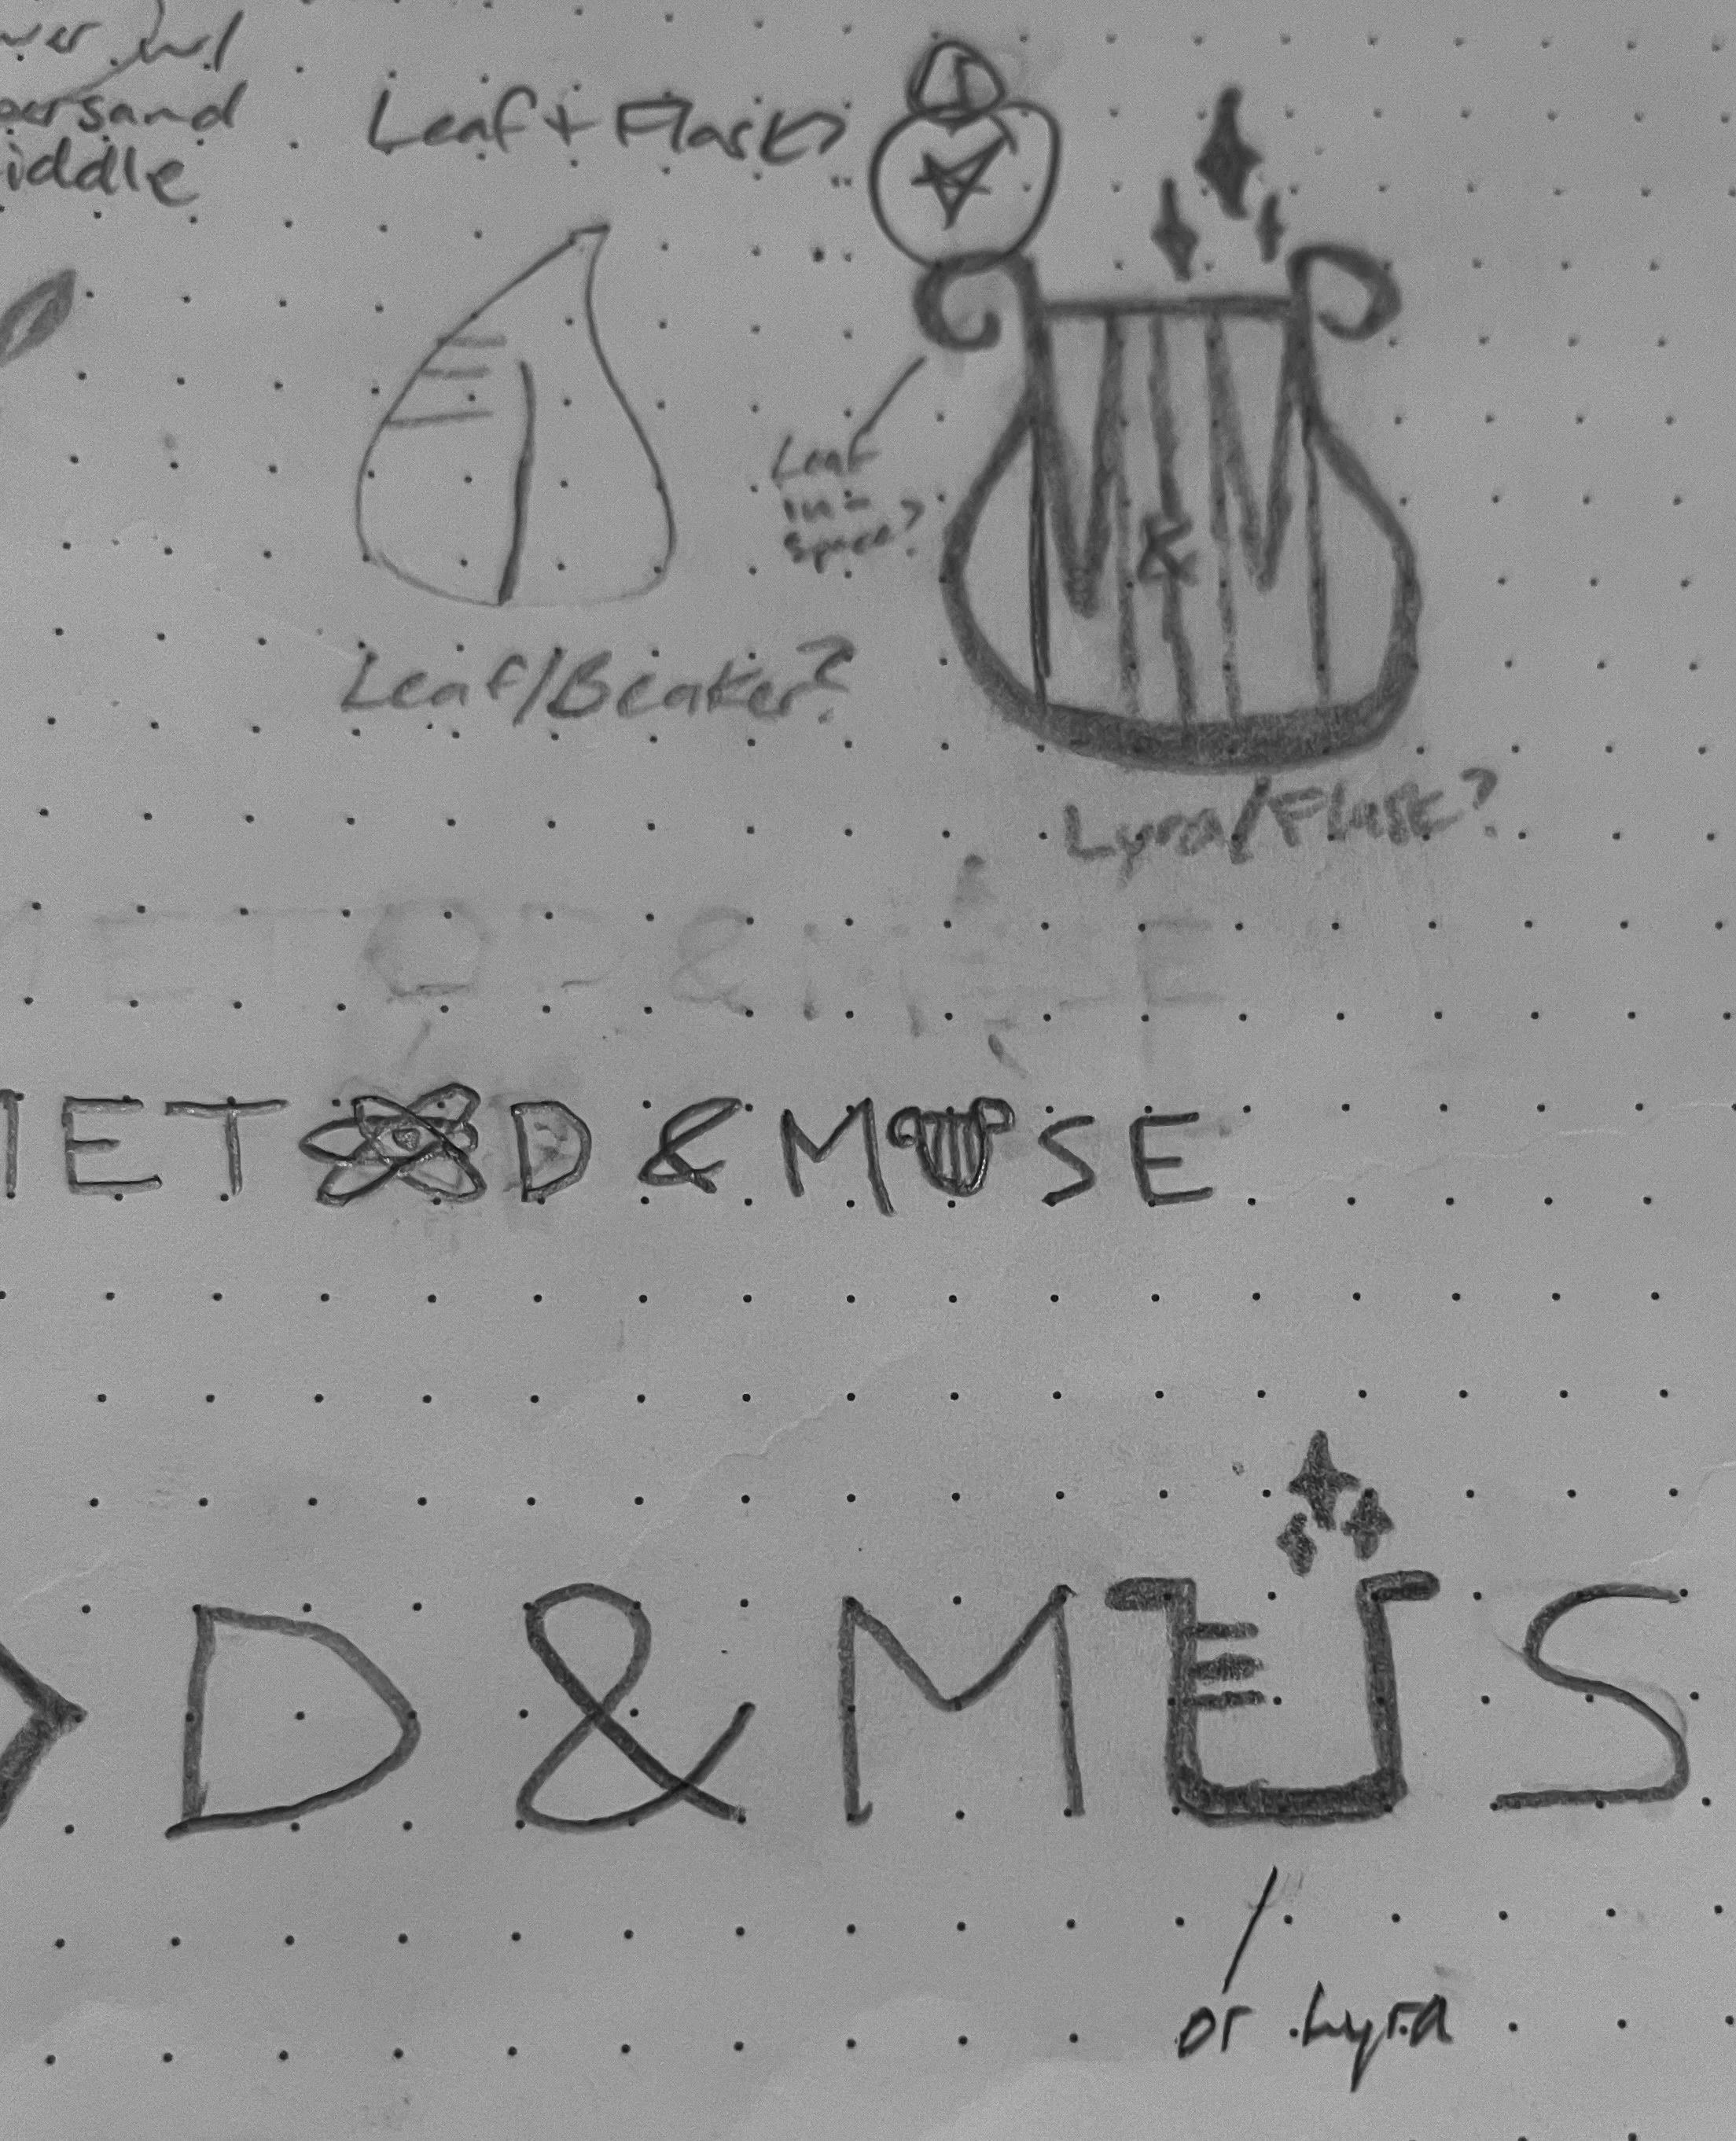 w/
persand
iddle
Leaf + Flask?
Leaf
in -
space?
&
Leaf/Beaker?
Lyra/Flask?
ET D & M SE
D & MUS
or Lyra